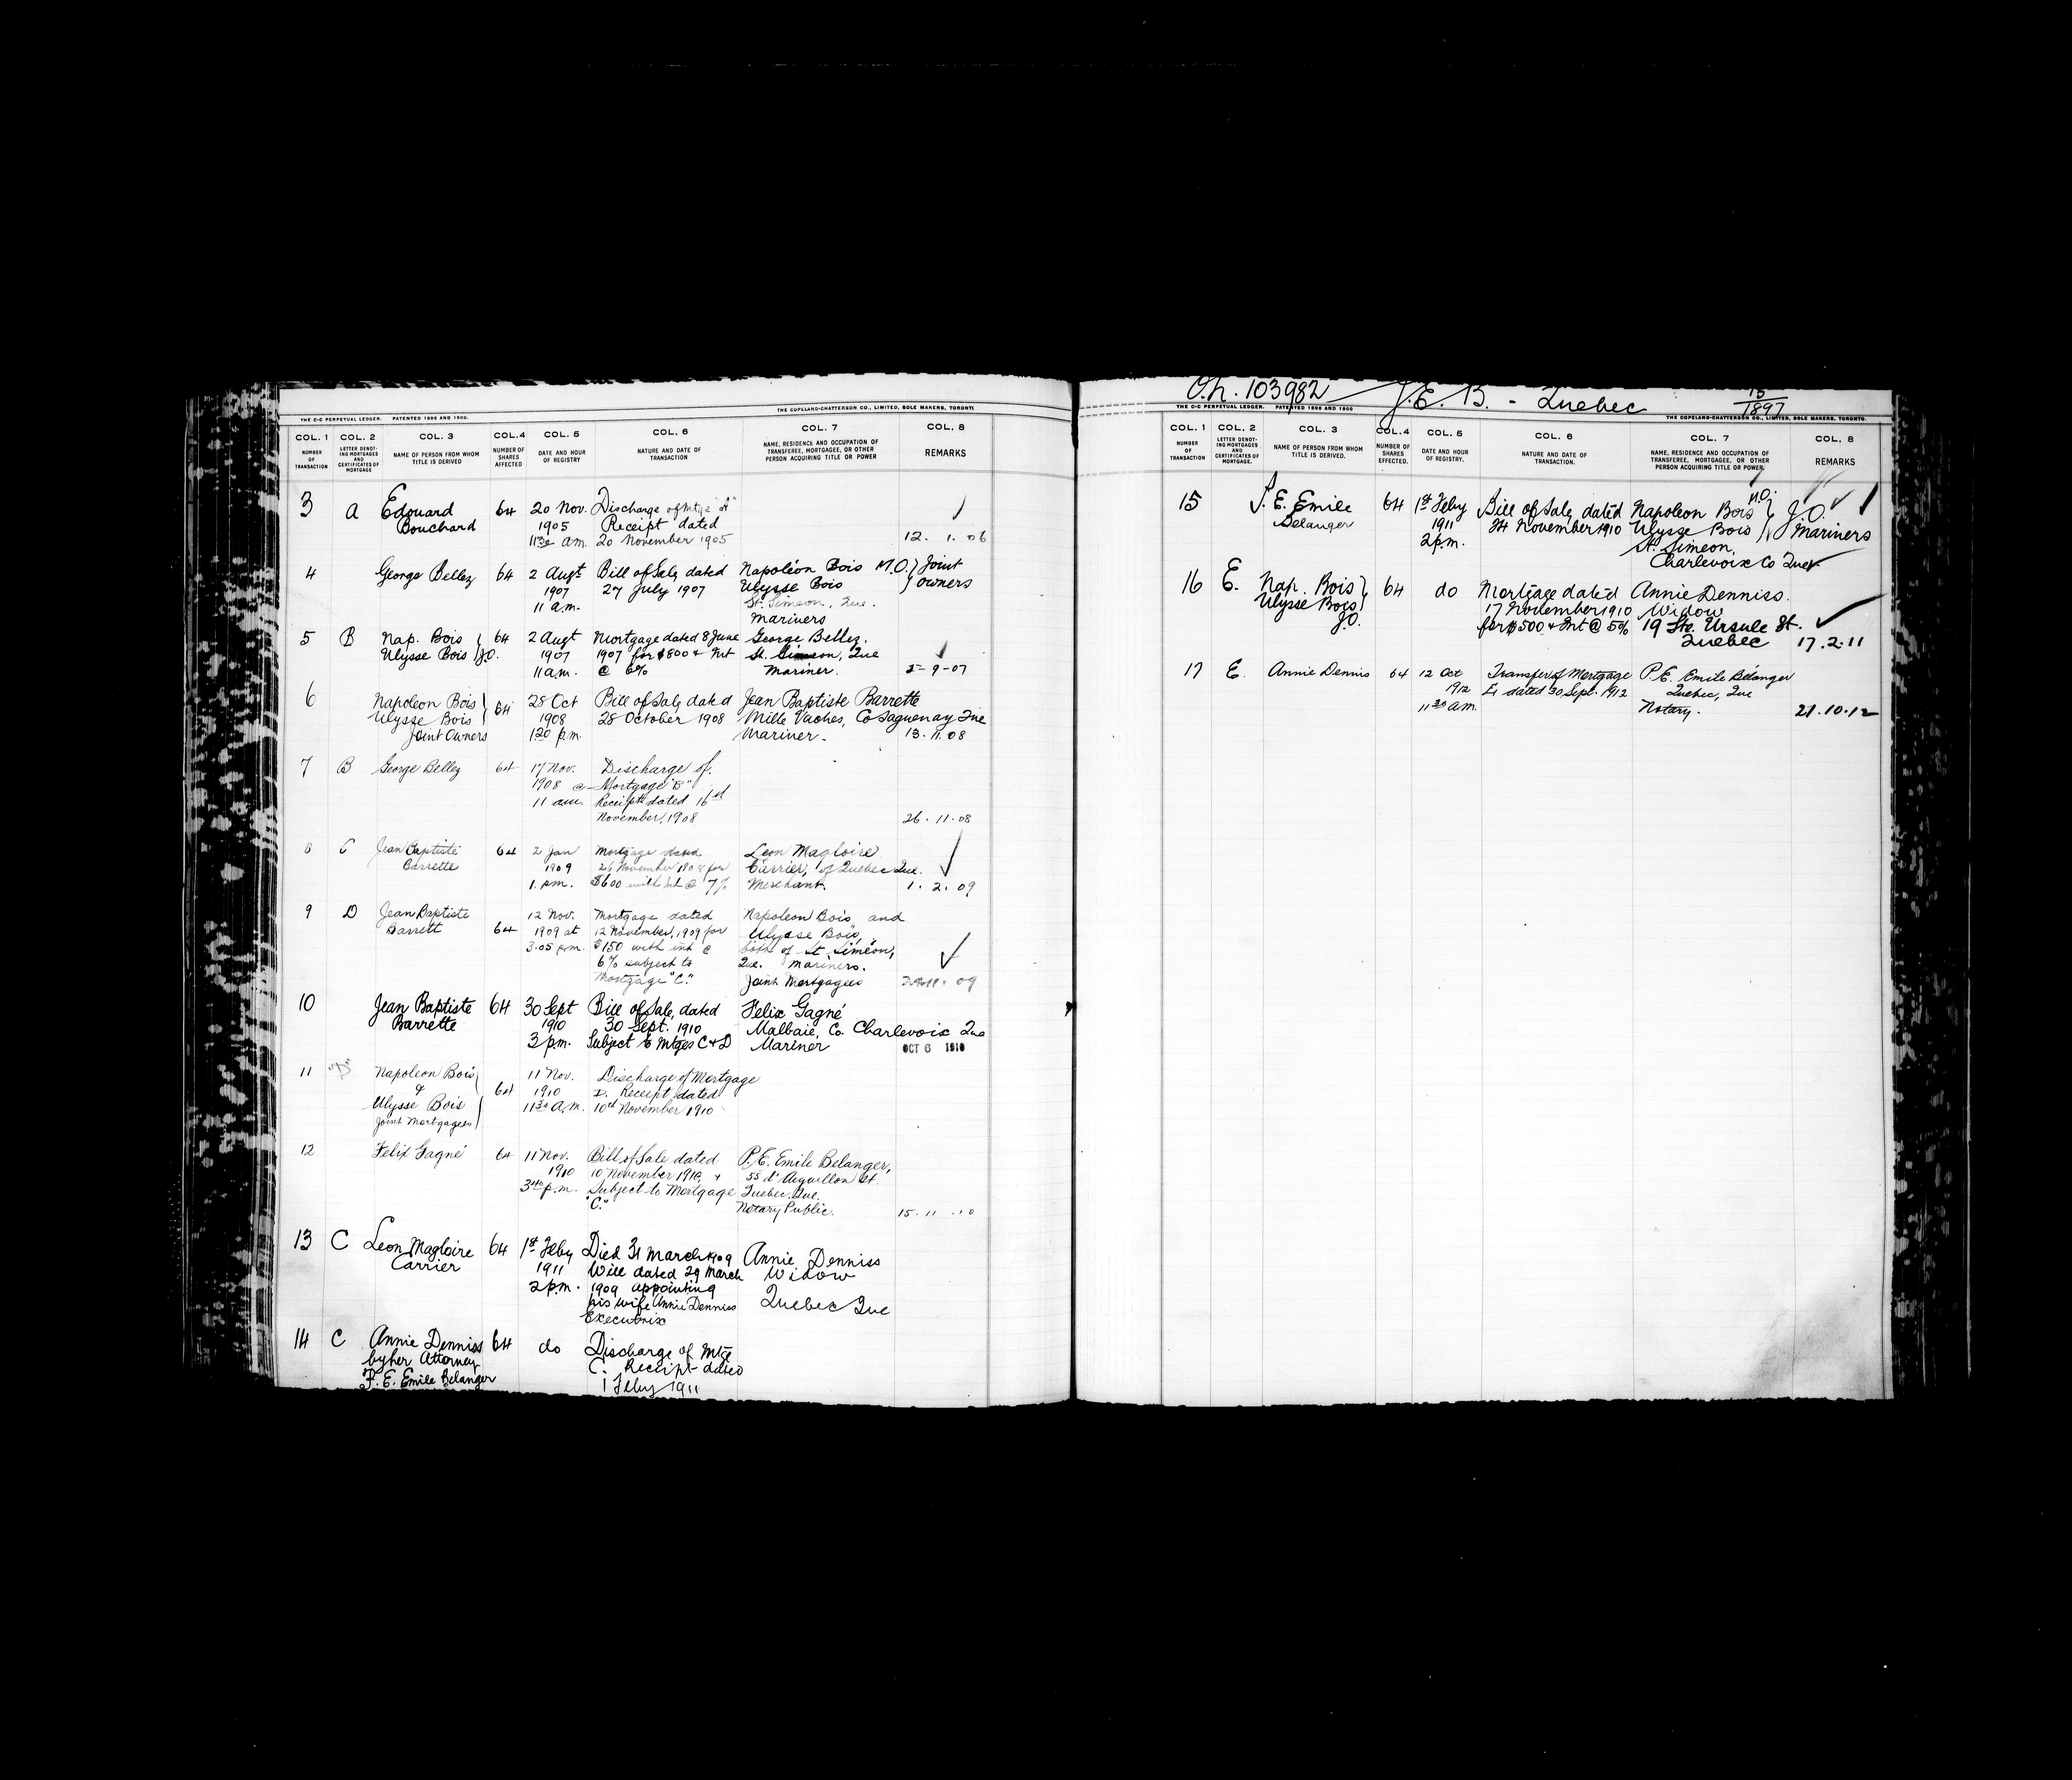 THE C-C PERPETUAL LEDGER. PATENTED 1898 AND 1900. THE COPELAND-CHATTERSON CO., LIMITED, SOLE MAKERS, TORONTO
COL. 1 COL. 2 COL. 3 COL. 4 COL. 5 COL. 6 COL. 7 COL. 8
NUMBER OF TRANSACTION
LETTER DENOTING MORTGAGES AND CERTIFICATES OF MORTGAGE
NAME OF PERSON FROM WHOM TITLE IS DERIVED
NUMBER OF SHARES AFFECTED
DATE AND HOUR OF REGISTRY
NATURE AND DATE OF TRANSACTION
NAME, RESIDENCE AND OCCUPATION OF TRANSFEREE, MORTGAGEE, OR OTHER PERSON ACQUIRING TITLE OR POWER
REMARKS
3 A Edouard 64 20 Nov. Discharge of Mtge "A"
Bouchard 1905 Receipt dated
11 30 am. 20 November 1905 12. 1. 06
4 George Belley 64 2 Augt Bill of Sale, dated Napoléon Bois M.O. } Joint
1907 27 July 1907 Ulysse Bois } owners
11 a.m. St. Simeon, Que.
mariners
5 B Nap. Bois } 64 2 Augt Mortgage dated 8 June George Belley.
Ulysse Bois } J.O. 1907 1907 for $800 + Int St. Simeon, Que
11 a.m. @ 6% Mariner. 2-9-07
6 Napoleon Bois } 64 28 Oct Bill of Sale, dated Jean Baptiste Barrette
Ulysse Bois } 1908 28 October 1908 Mille Vaches, Co Saguenay Que
Joint Owners 1 20 p.m. Mariner. 13.11.08
7 B George Belley 64 17 Nov. Discharge of
1908 @ Mortgage "B"
11 am. Receipt dated 16
November, 1908 26.11.08
8 C Jean Baptiste 64 2 Jan Mortgage dated Leon Magloire
Barrette 1909 26 November 1908 for Carrier, of Quebec Que.
1. pm. $600 with Int @ 7% Merchant. 1. 2. 09
9 D Jean Baptiste 12 Nov. Mortgage dated Napoleon Bois, and
Barrett 64 1909 at 12 November, 1909 for Ulysse Bois,
3.05 p.m. $150 with int @ both of St. Siméon,
6% subject to Que. Mariners.
Mortgage "C". Joint Mortgagees 09
10 Jean Baptiste 64 30 Sept Bill of Sale, dated Felix Gagné
Barrette 1910 30 Sept. 1910 Malbaie, Co. Charlevoix Que
3 p.m. Subject to Mtges C + D Mariner OCT 6 1910
11 "D" Napoleon Bois } 11 Nov. Discharge of Mortgage
& 64 1910 D. Receipt dated
Ulysse Bois } 11 30 A.m. 10th November 1910
Joint Mortgagees }
12 Felix Gagné 64 11 Nov. Bill of Sale dated P.E. Emile Belanger,
1910 10 November 1910, + 55 d'Aiguillon St
3 40 p.m. Subject to Mortgage Quebec. Que.
"C." Notary Public. 15.11.10
13 C Leon Magloire 64 1st Feby Died 31 March 1909 Annie Denniss
Carrier 1911 Will dated 29 March Widow
2 p.m. 1909 appointing Quebec Que
his wife Annie Denniss
Executrix
14 C Annie Denniss 64 do Discharge of Mtge
by her Attorney C. Receipt dated
P. E. Emile Belanger 1 Feby 1911
O.N. 103982 J.E.B. - Quebec 15/1897
THE C-C PERPETUAL LEDGER. PATENTED 1898 AND 1900 THE COPELAND-CHATTERSON CO., LIMITED, SOLE MAKERS, TORONTO.
COL. 1 COL. 2 COL. 3 COL. 4 COL. 5 COL. 6 COL. 7 COL. 8
NUMBER OF TRANSACTION
LETTER DENOTING MORTGAGES AND CERTIFICATES OF MORTGAGE.
NAME OF PERSON FROM WHOM TITLE IS DERIVED.
NUMBER OF SHARES EFFECTED.
DATE AND HOUR OF REGISTRY.
NATURE AND DATE OF TRANSACTION.
NAME, RESIDENCE AND OCCUPATION OF TRANSFEREE, MORTGAGEE, OR OTHER PERSON ACQUIRING TITLE OR POWER.
REMARKS
15 P. E. Emile 64 1st Feby Bill of Sale, dated Napoleon Bois M.O. } J.O.
Belanger 1911 24 November 1910 Ulysse Bois } Mariners
2 p.m. St. Simeon,
Charlevoix Co Que
16 E. Nap. Bois } 64 do Mortgage dated Annie Denniss.
Ulysse Bois } 17 November 1910 Widow
J.O. for $500 + Int @ 5% 19 Ste. Ursule St.
Quebec 17.2.11
17 E. Annie Dennis 64 12 Oct Transfer of Mortgage P.E. Emile Bélanger
1912 E, dated 30 Sept. 1912 Quebec, Que
11 30 am. Notary. 21.10.12